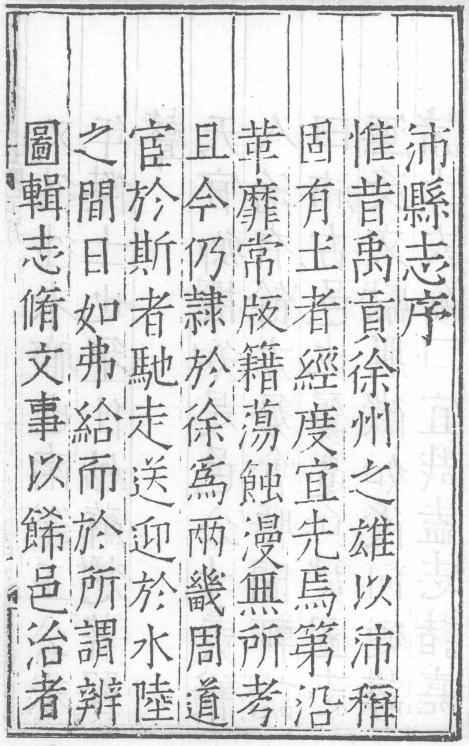 沛縣志序
惟昔禹貢徐州之雄以沛稱
固有土者經度宜先焉第沿
革靡常版籍蕩蝕漫無所考
且今仍隸於徐為兩畿周道
宦於斯者馳走送迎於水陸
之間日如弗給而於所謂辨
圖輯志脩文事以餙邑治者